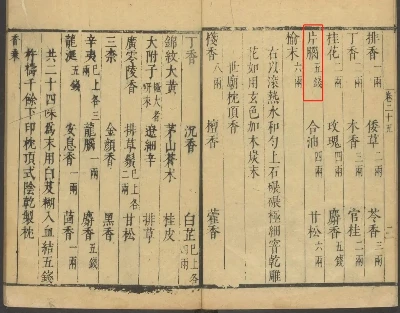 卷二十五
排香一兩 倭草一兩 苓香三兩
丁香一兩 木香三兩 官桂二兩
桂花二兩 玫瑰四兩 麝香五錢
片腦五錢 合油四兩 甘松六兩
榆木六兩
右以滾熱水和勻上石碌碌極細窨乾雕
花如用玄色加木炭末
世廟枕頂香
棧香八兩 檀香 藿香
丁香 沉香 白芷已上各四兩
錦紋大黃 茅山蒼朮 桂皮
大附子研末 遼細辛 排草
廣零陵香 排草鬚已上各二兩 甘松
三柰 金顏香 黑香
辛夷已上各三兩 龍腦一兩 麝香五錢
龍涎五錢 安息香一兩 茴香一兩
共二十四味為末用白芨糊入血結五錢
杵擣千餘下印枕頂式陰乾製枕
香乘